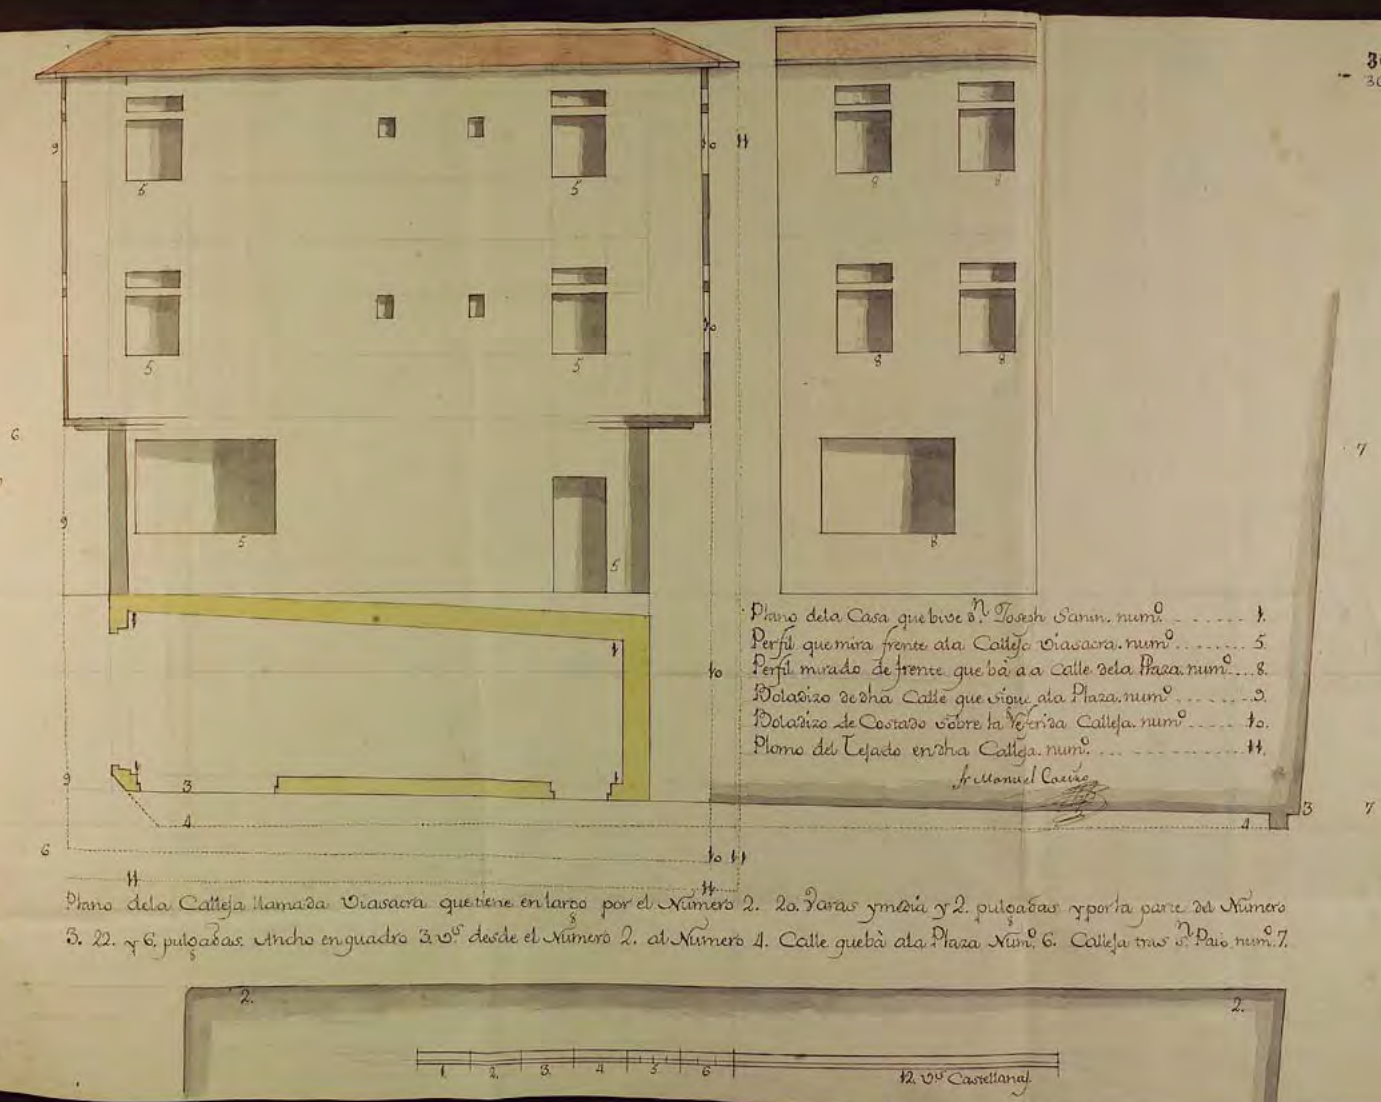 Plano dela Casa que bive dⁿ. Joseph Sanin. numº. ....... 1.
Perfil que mira frente ala Calleja Viasacra. numº ........ 5.
Perfil mirado de frente que bà a a Calle dela Plaza. numº.... 8.
Boladizo de dha Calle que sigue ala Plaza. numº ........ 9.
Boladizo de Costado sobre la Referida Calleja. numº ..... 10.
Plomo del Tejado en dha Calleja. numº. ............. 11.
fr Manuel
Plano dela Calleja llamada Viasacra que tiene en largo por el Número 2. 20. Varas y media y 2. pulgadas y por la parte del Número
3. 22. y 6. pulgadas. Ancho en quadro 3. vˢ desde el Número 2. al Número 4. Calle que bà ala Plaza Numº. 6. Calleja tras Sⁿ. Paio numº. 7.
2.
2.
1. 2. 3. 4 5 6 12. vˢ Castellanas.